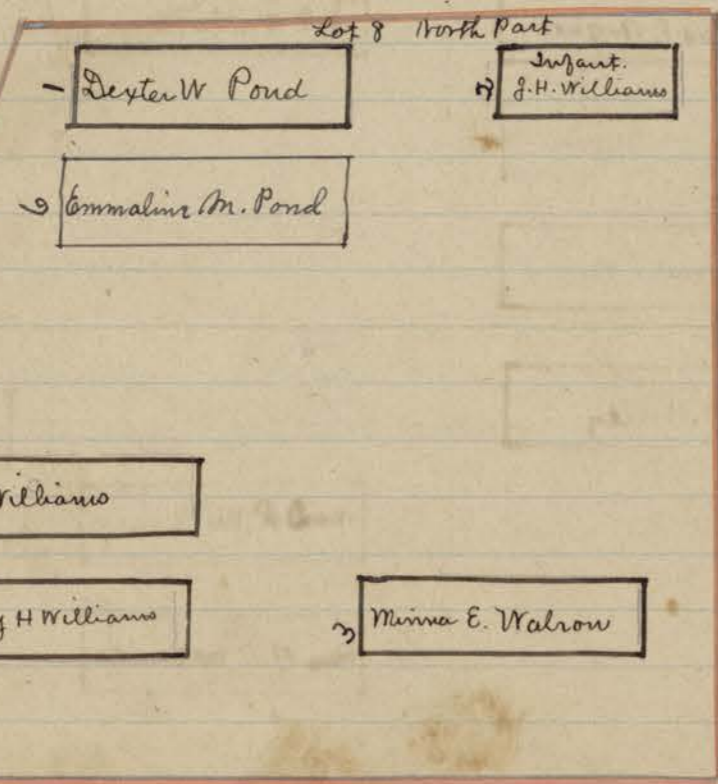 Lot 8 North Part
1 Dexter W Pond
Infant.
J.H. Williams
2 Emmaline M. Pond
Williams
H Williams
3 Minna E.